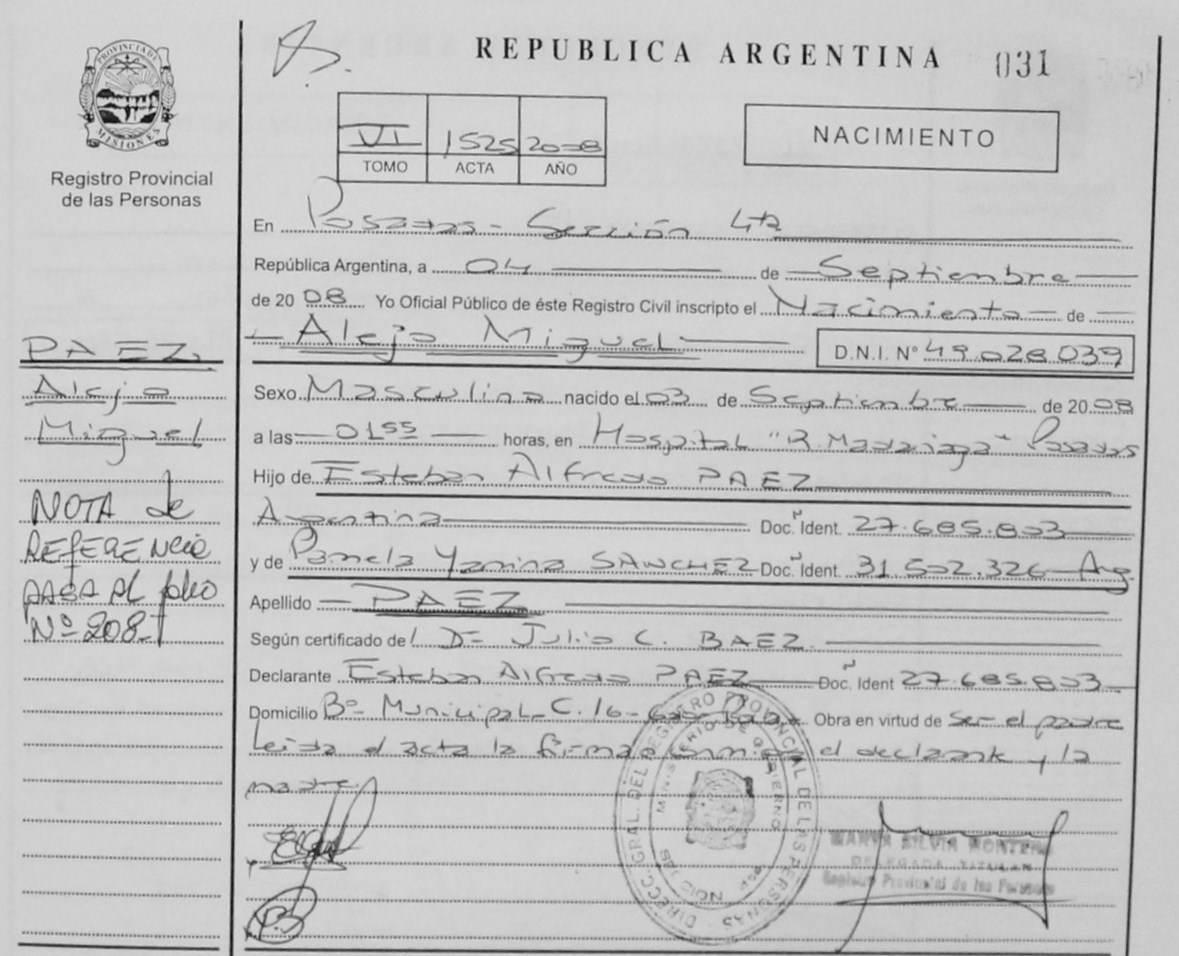 REPUBLICA ARGENTINA 031
PROVINCIA DE MISIONES
Registro Provincial
de las Personas
VI 1525 2008
TOMO ACTA AÑO
NACIMIENTO
En Posadas - Sección 4ta
República Argentina, a 04 de Septiembre
de 2008 Yo Oficial Público de éste Registro Civil inscripto el Nacimiento de
Alejo Miguel D.N.I. N° 49.028.039
Sexo Masculino nacido el 03 de Septiembre de 2008
a las 01 55 horas, en Hospital "R. Madariaga" Posadas
Hijo de Esteban Alfredo PAEZ
Argentina Doc. Ident. 27.685.803
y de Pamela Yanina SANCHEZ Doc. Ident. 31.502.326 Arg.
Apellido PAEZ
Según certificado del Dr Julio C. BAEZ
Declarante Esteban Alfredo PAEZ Doc. Ident 27.685.803
Domicilio Bº Municipal C. 16 Obra en virtud de ser el padre
Leida el acta la firman conmigo el declarante y la
madre
PAEZ
Alejo
Miguel
NOTA de
REFERENCIA
PASA AL folio
Nº 208
DIRECC. GRAL. DEL REGISTRO PROVINCIAL DE LAS PERSONAS
MINISTERIO DE GOBIERNO
SILVIA MONTERO
DELEGADA TITULAR
Registro Provincial de las Personas